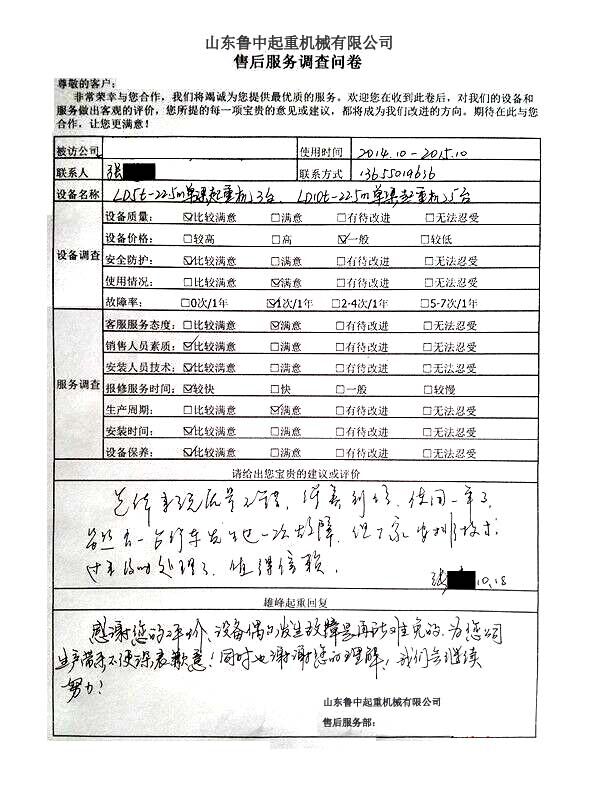 山东鲁中起重机械有限公司
售后服务调查问卷
尊敬的客户：
非常荣幸与您合作，我们将竭诚为您提供最优质的服务。欢迎您在收到此卷后，对我们的设备和
服务做出客观的评价，您所提的每一项宝贵的意见或建议，都将成为我们改进的方向。期待在此与您
合作，让您更满意！
被访公司 使用时间 2014.10-2015.10
联系人 张 联系方式 13655019636
设备名称 LD5t-22.5m单梁起重机23台、LD10t-22.5m单梁起重机25台
设备调查
设备质量： ☑比较满意 □满意 □有待改进 □无法忍受
设备价格： □较高 □高 ☑一般 □较低
安全防护： ☑比较满意 □满意 □有待改进 □无法忍受
使用情况： □比较满意 ☑满意 □有待改进 □无法忍受
故障率： □0次/1年 ☑1次/1年 □2-4次/1年 □5-7次/1年
服务调查
客服服务态度： □比较满意 ☑满意 □有待改进 □无法忍受
销售人员素质： ☑比较满意 □满意 □有待改进 □无法忍受
安装人员技术： ☑比较满意 □满意 □有待改进 □无法忍受
报修服务时间： ☑较快 □快 □一般 □较慢
生产周期： □比较满意 ☑满意 □有待改进 □无法忍受
安装时间： ☑比较满意 □满意 □有待改进 □无法忍受
设备保养： ☑比较满意 □满意 □有待改进 □无法忍受
请给出您宝贵的建议或评价
总体来说质量不错，使用一年了
虽然有一台行车发生过一次故障，但厂家安排技术
过来及时处理了，值得信赖。
张 10.18
雄峰起重回复
感谢您的评价、设备偶尔发生故障是再所难免的，为您公司
生产带来不便深表歉意！同时也谢谢您的理解，我们会继续
努力！
山东鲁中起重机械有限公司
售后服务部：